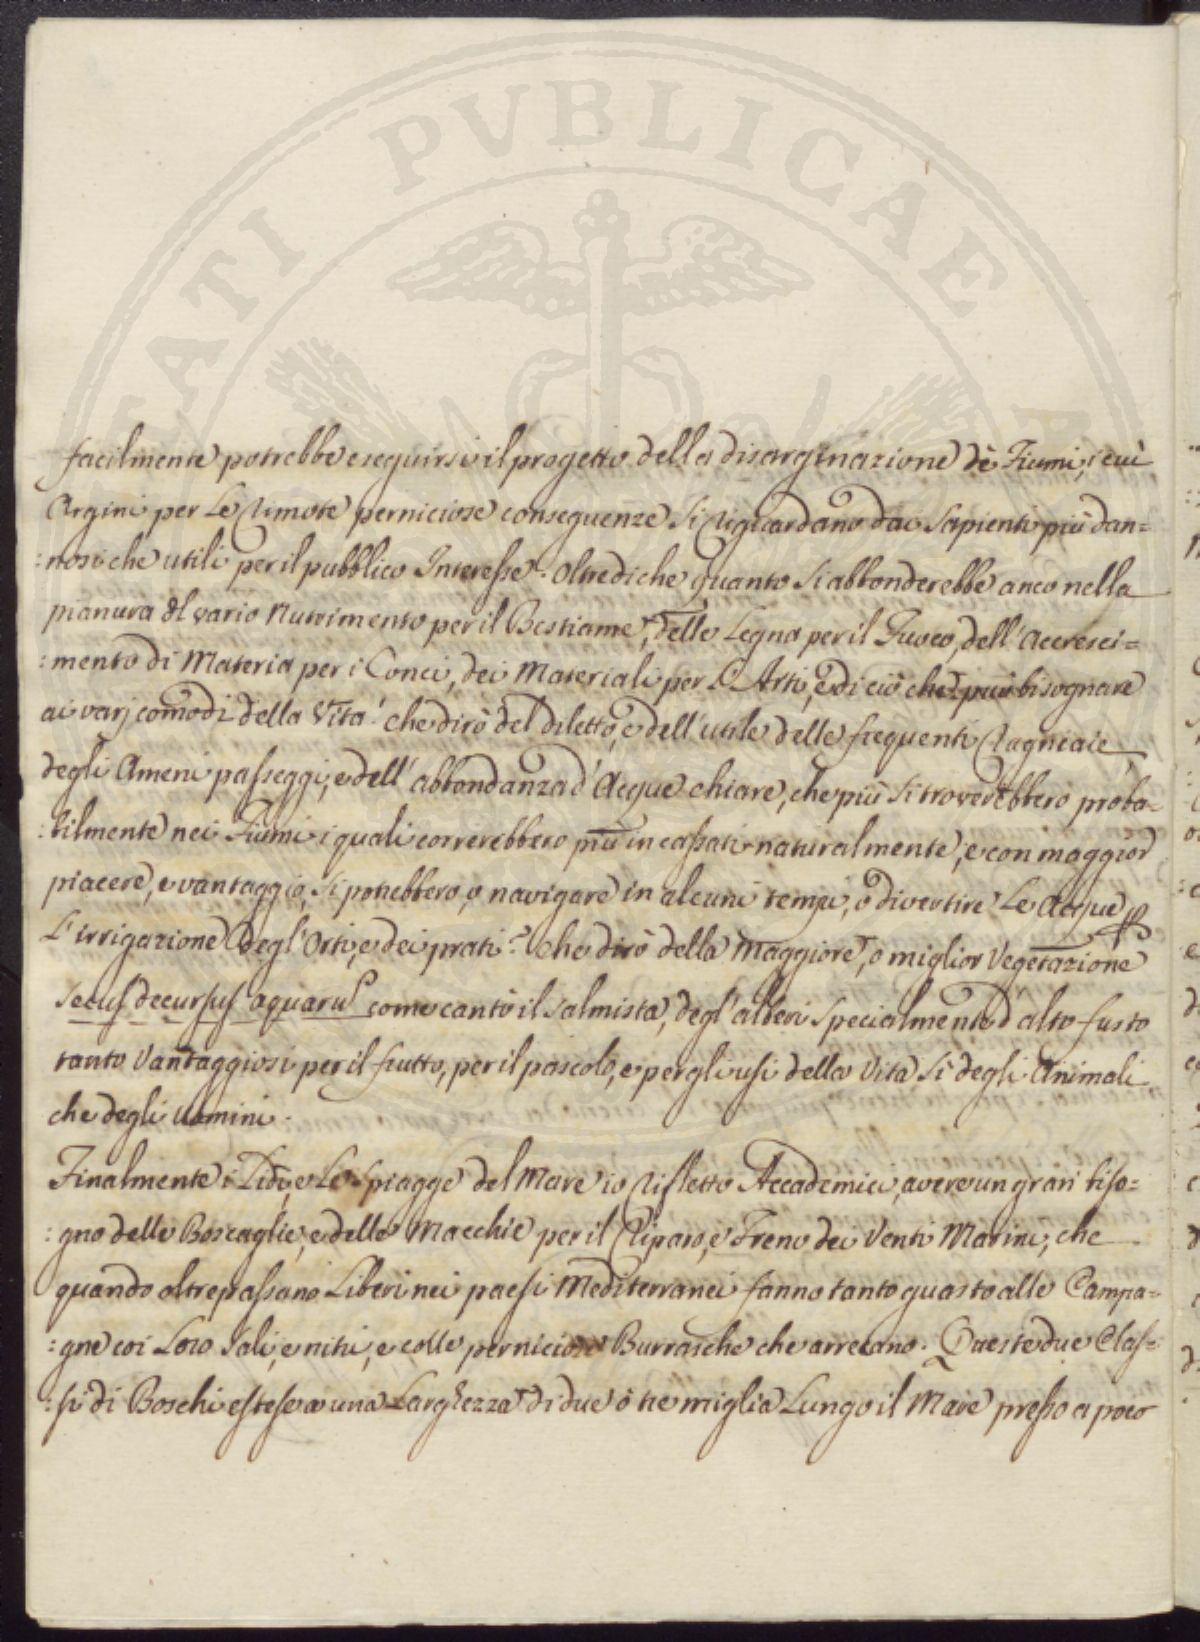 PVBLICAE
facilmente potrebbe eseguirsi il progetto della disarginazione dè Fiumi, i cui
Argini per Le rimote perniciose conseguenze si riguardano dai Sapienti più dan=
:nosi che utili per il pubblico Interesse. Oltrediche quanto si abbonderebbe anco nella
pianura del vario Nutrimento per il Bestiame, delle Legna per il Fuoco, dell'Accresci=
:mento di Materia per i Conci, dei Materiali per L'Arti, e di ciò che può bisognare
ai varj comodi della Vita! che dirò del diletto, e dell'utile delle frequenti ragnaie
degli Ameni passeggi, e dell'abbondanza d'Acque chiare, che più si troverebbero proba=
:bilmente nei Fiumi i quali correrebbero più incassati naturalmente, e con maggior
piacere, e vantaggio, si potrebbero, o navigare in alcuni tempi, o divertire Le Acque p
L'irrigazione degl'Orti, e dei prati? Che dirò della Maggiore, o miglior Vegetazione
secus decursus aquaru come cantò il Salmista, degl'alberi specialmente d'alto fusto
tanto Vantaggiosi per il frutto, per il pascolo, e per gli usi della Vita sì degli Animali
che degli uomini.
Finalmente i Lidi, e Le Spiagge del Mare io rifletto Accademici, avere un gran biso=
:gno delle Boscaglie, e delle Macchie per il Riparo, e Freno dei Venti Marini, che
quando oltrepassano Liberi nei paesi Mediterranei fanno tanto guasto alle Campa=
:gne coi Loro Sali, e nitri, e colle perniciose Burrasche che arrecano. Queste due Clas=
:si di Boschi estese a una Larghezza di due ò tre miglia Lungo il Mare presso a poco